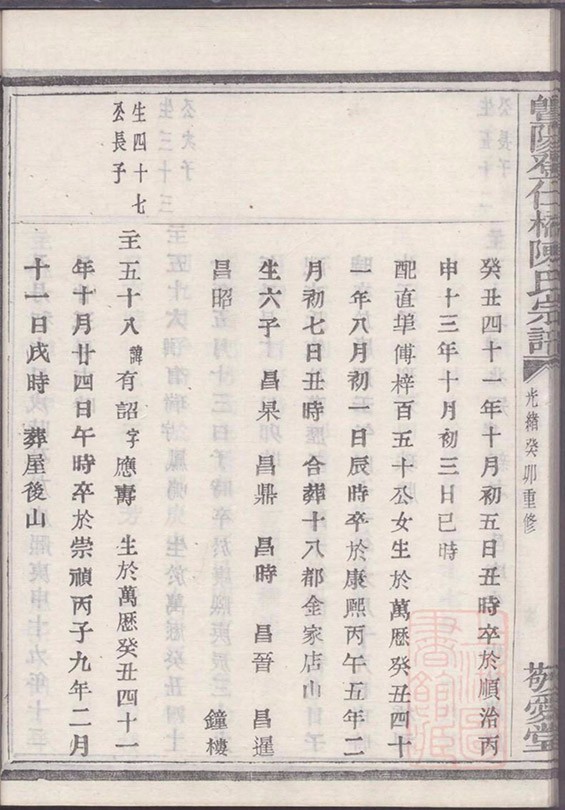 暨陽全仁橋陳氏宗譜
光緒癸卯重修
敬愛堂
癸丑四十一年十月初五日丑時卒於順治丙
申十三年十月初三日巳時
配直埠傅梓百五十公女生於萬曆癸丑四十
一年八月初一日辰時卒於康熙丙午五年二
月初七日丑時　合葬十八都金家店山
生六子　昌杲　昌鼎　昌時　昌晉　昌暹
昌昭　鐘樓
生四十七
公長子
主五十八諱有詔字應壽　生於萬曆癸丑四十一
年十月廿四日午時卒於崇禎丙子九年二月
十一日戌時　葬屋後山